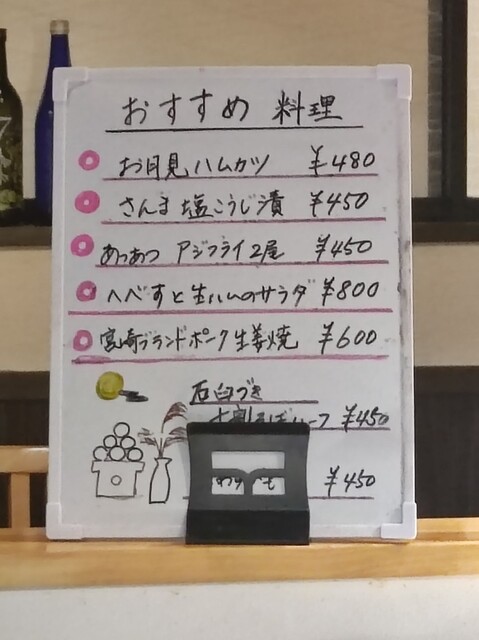 おすすめ 料理
お月見ハムカツ ¥480
さんま塩こうじ漬 ¥450
あつあつ アジフライ2尾 ¥450
へべすと生ハムのサラダ ¥800
宮崎ブランドポーク生姜焼 ¥600
石臼づき
十割そばハーフ ¥450
¥450